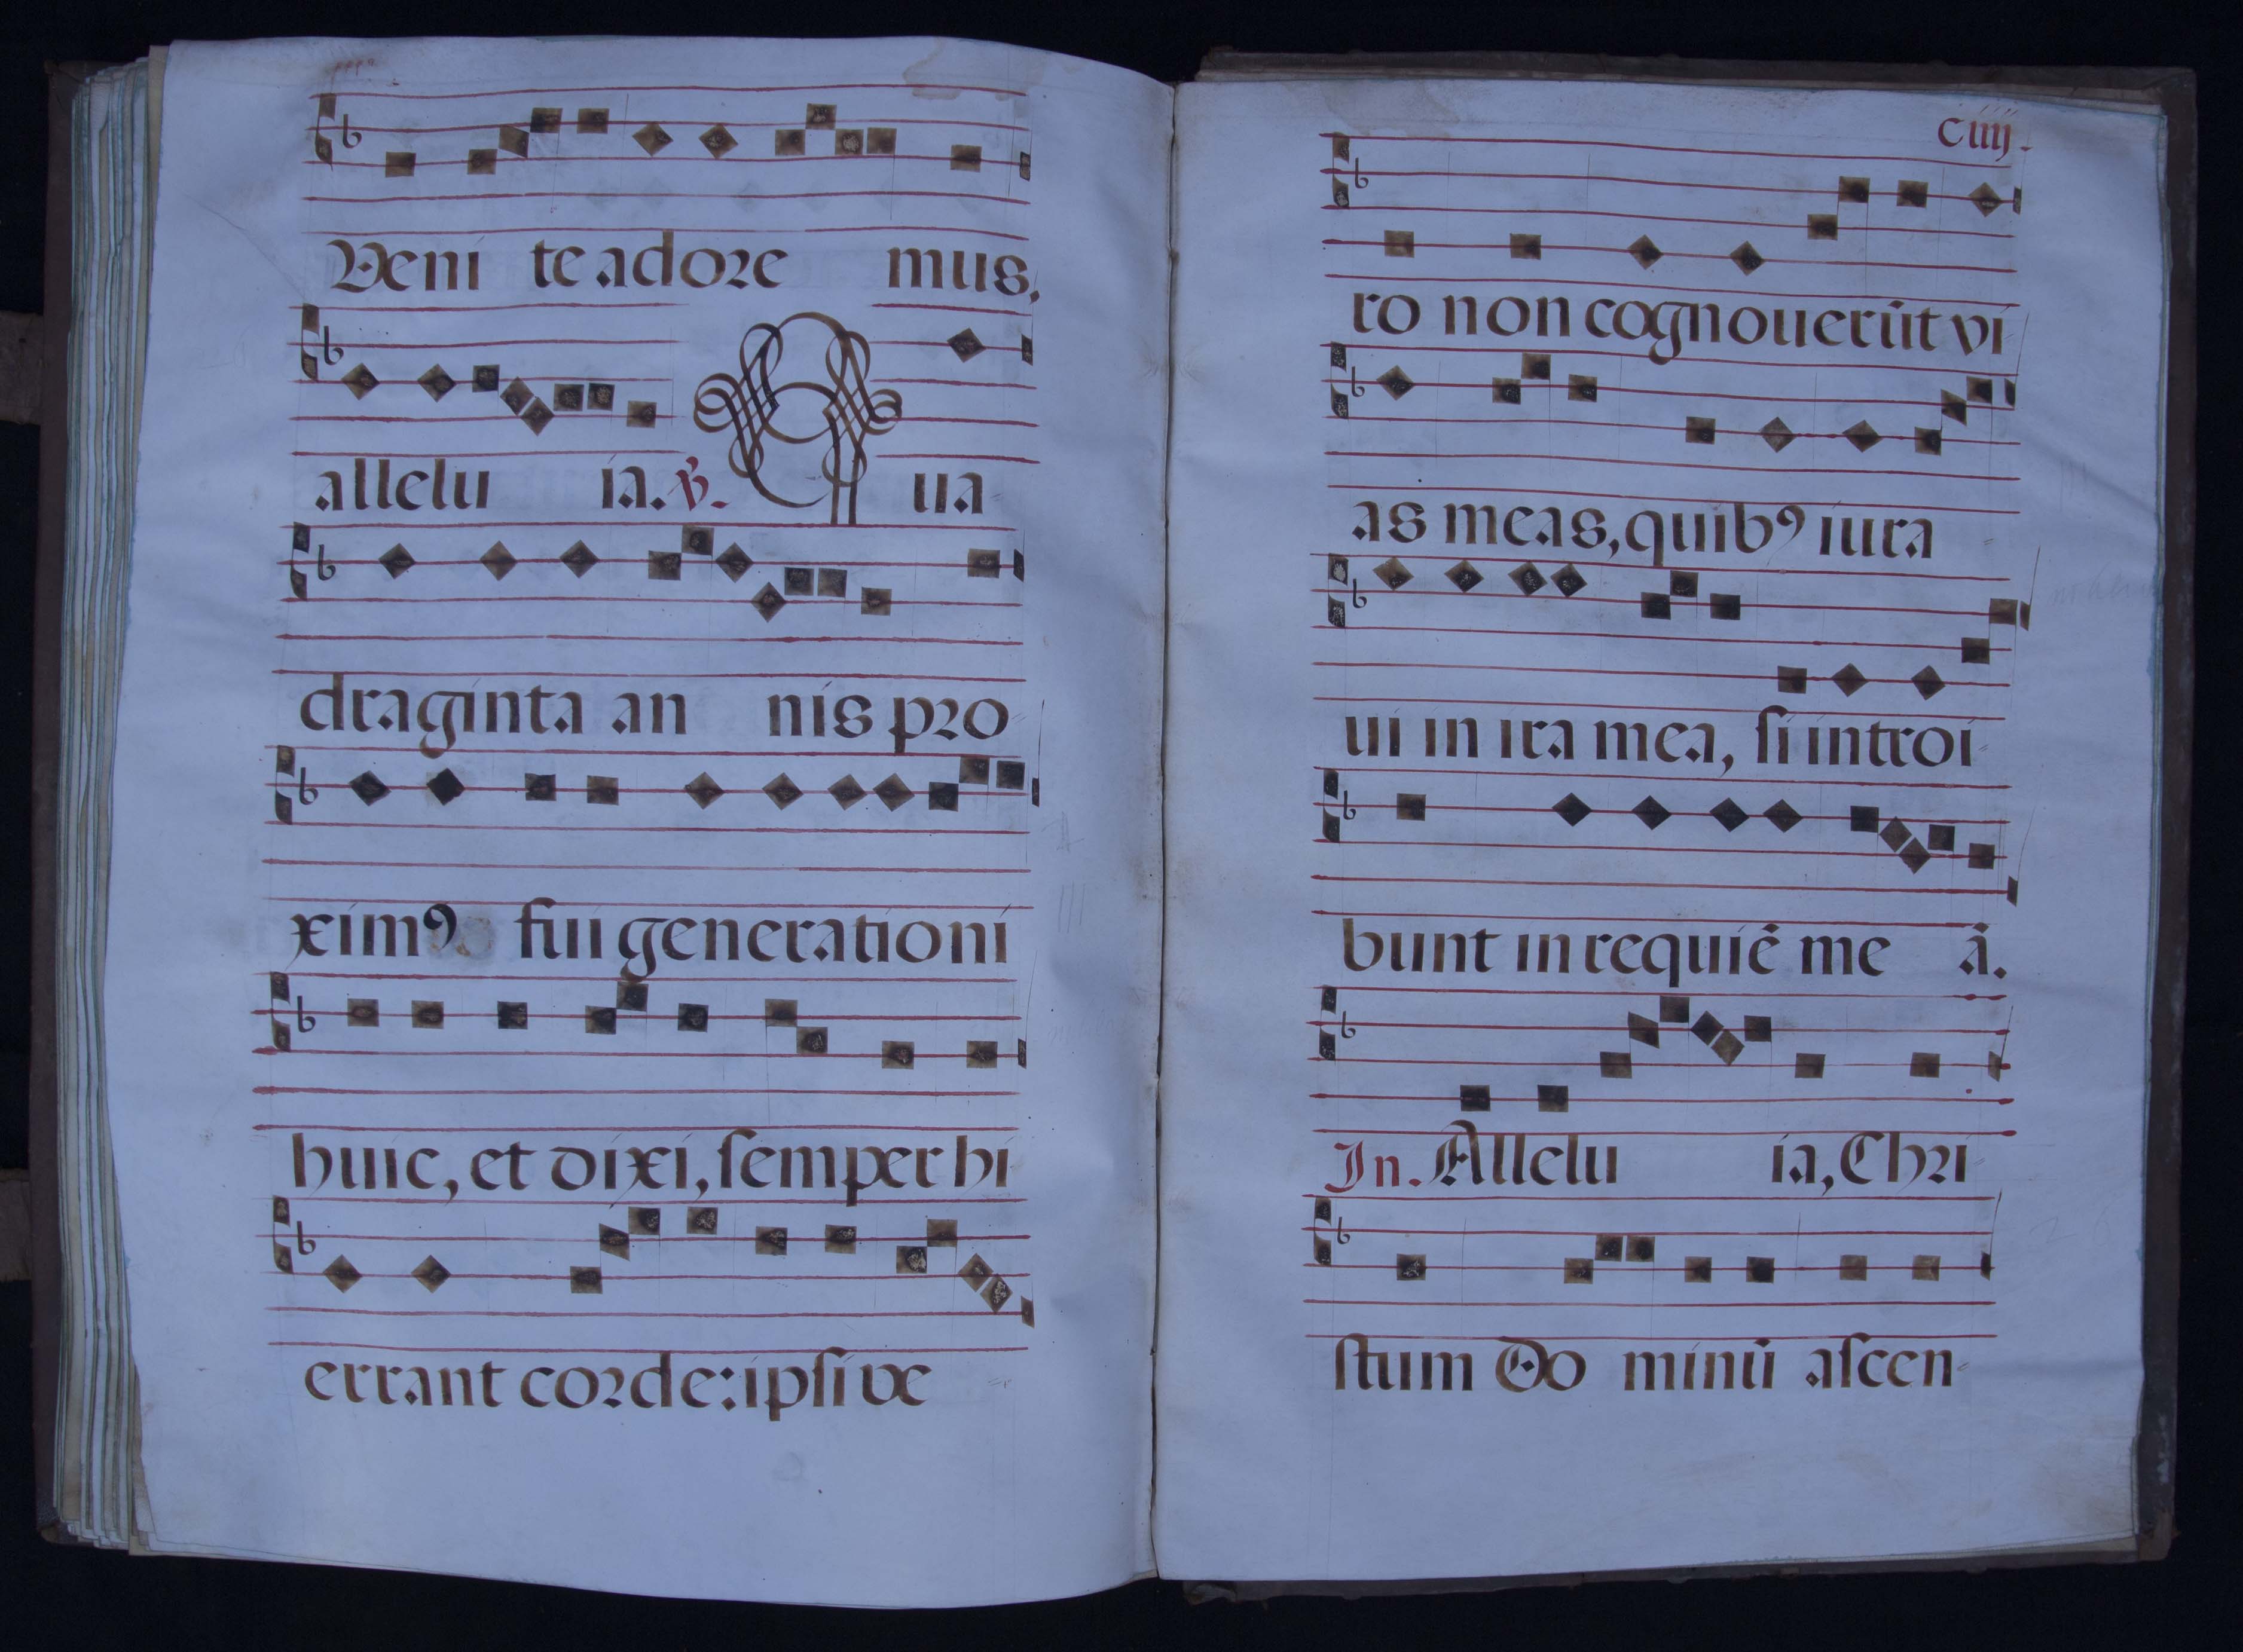 Veni te adore mus,
allelu ia. ℣. Qua
draginta an nis pro
ximꝰ fui generationi
huic, et dixi, semper hi
errant corde: ipsi ve
Ciiij.
ro non cognouerūt vi
as meas, quibꝰ iura
ui in ira mea, si introi
bunt in requiē me ā.
In. Allelu ia, Chri
stum Do minū ascen-